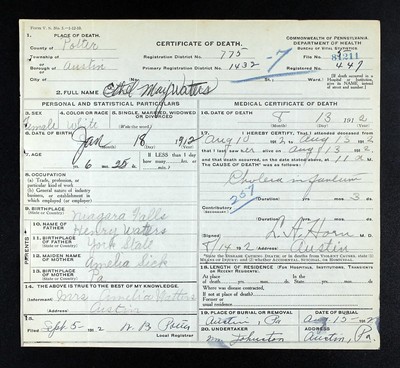 Form V. S. No. 5
1. PLACE OF DEATH.
County of Potter
Township of
Borough of Austin
City of
CERTIFICATE OF DEATH.
Registration District No. 775
Primary Registration District No. 1432
COMMONWEALTH OF PENNSYLVANIA
DEPARTMENT OF HEALTH
BUREAU OF VITAL STATISTICS
File No. 81211
Registered No. 447
-7
2. FULL NAME Ethel May Waters
PERSONAL AND STATISTICAL PARTICULARS
3. SEX
Female
4. COLOR OR RACE
Wite
5. SINGLE, MARRIED, WIDOWED OR DIVORCED
(Write the word)
6. DATE OF BIRTH
Jan 18 1912
(Month) (Day) (Year)
7. AGE
6 mos. 25 ds.
If LESS than 1 day
8. OCCUPATION
(a) Trade, profession, or particular kind of work
(b) General nature of industry, business, or establishment in which employed (or employer)
9. BIRTHPLACE
(State or Country)
Niagara Falls
10. NAME OF FATHER
Henrey Waters
11. BIRTHPLACE OF FATHER
(State or Country)
York State
12. MAIDEN NAME OF MOTHER
Amelia Sick
13. BIRTHPLACE OF MOTHER
(State or Country)
Pa
PARENTS
14. THE ABOVE IS TRUE TO THE BEST OF MY KNOWLEDGE.
(Informant) Mrs Amelia Watters
(Address) Austin
15.
Filed Sept 5- 1912
Local Registrar
MEDICAL CERTIFICATE OF DEATH
16. DATE OF DEATH
8 13 1912
(Month) (Day) (Year)
17. I HEREBY CERTIFY, That I attended deceased from
Aug 10 1912 to Aug 13 1912
that I last saw her alive on Aug 13 1912
and that death occurred, on the date stated above, at 11 M.
The CAUSE OF DEATH was as follows:
Cholera infantum
(Duration) yrs. mos. 3 ds.
Contributory
(SECONDARY)
257
(Duration) yrs. mos. ds.
(Signed)
8/14 1912 (Address) Austin
18. LENGTH OF RESIDENCE (FOR HOSPITALS, INSTITUTIONS, TRANSIENTS OR RECENT RESIDENTS).
Where was disease contracted,
if not at place of death?
Former or
usual residence
19. PLACE OF BURIAL OR REMOVAL
Austin, Pa
DATE OF BURIAL
Aug 15- 1912
20. UNDERTAKER
Johnston
ADDRESS
Austin, Pa.